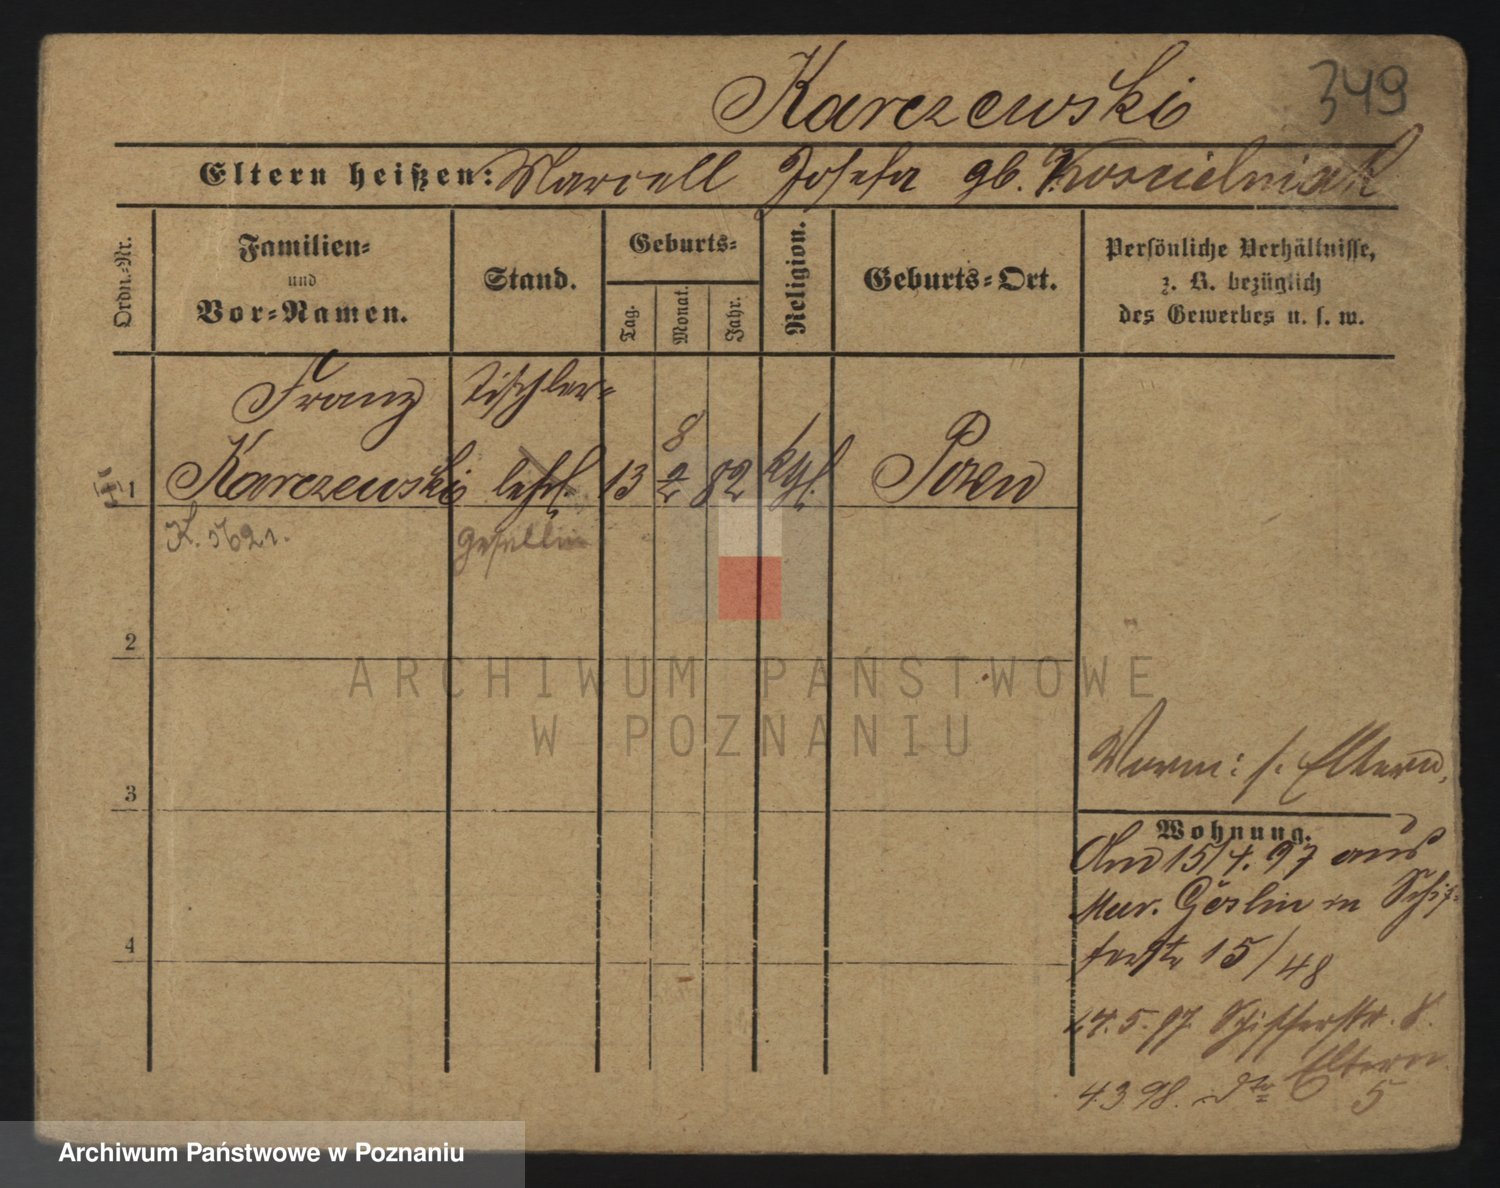 349
Karczewski
Eltern heißen: Marcell Josefa gb. Koscielniak
Ordn.-Nr.
Familien-
und
Vor-Namen.
Stand.
Geburts-
Tag.
Monat.
Jahr.
Religion.
Geburts-Ort.
Persönliche Verhältnisse,
z. B. bezüglich
des Gewerbes u. s. w.
Franz Tischler-
8
1 Karczewski lehrl. 13 2 82 kth. Posen
K.
2
ARCHIWUM PAŃSTWOWE
W POZNANIU
Vorm: s. Eltern,
3
Wohnung.
Am 15/4. 97 aus
Mur. Goslin in Schif-
4
ferstr 15/48
24.5.97. Schifferstr. 8.
Eltern
4.3.98. dto 5
Archiwum Państwowe w Poznaniu